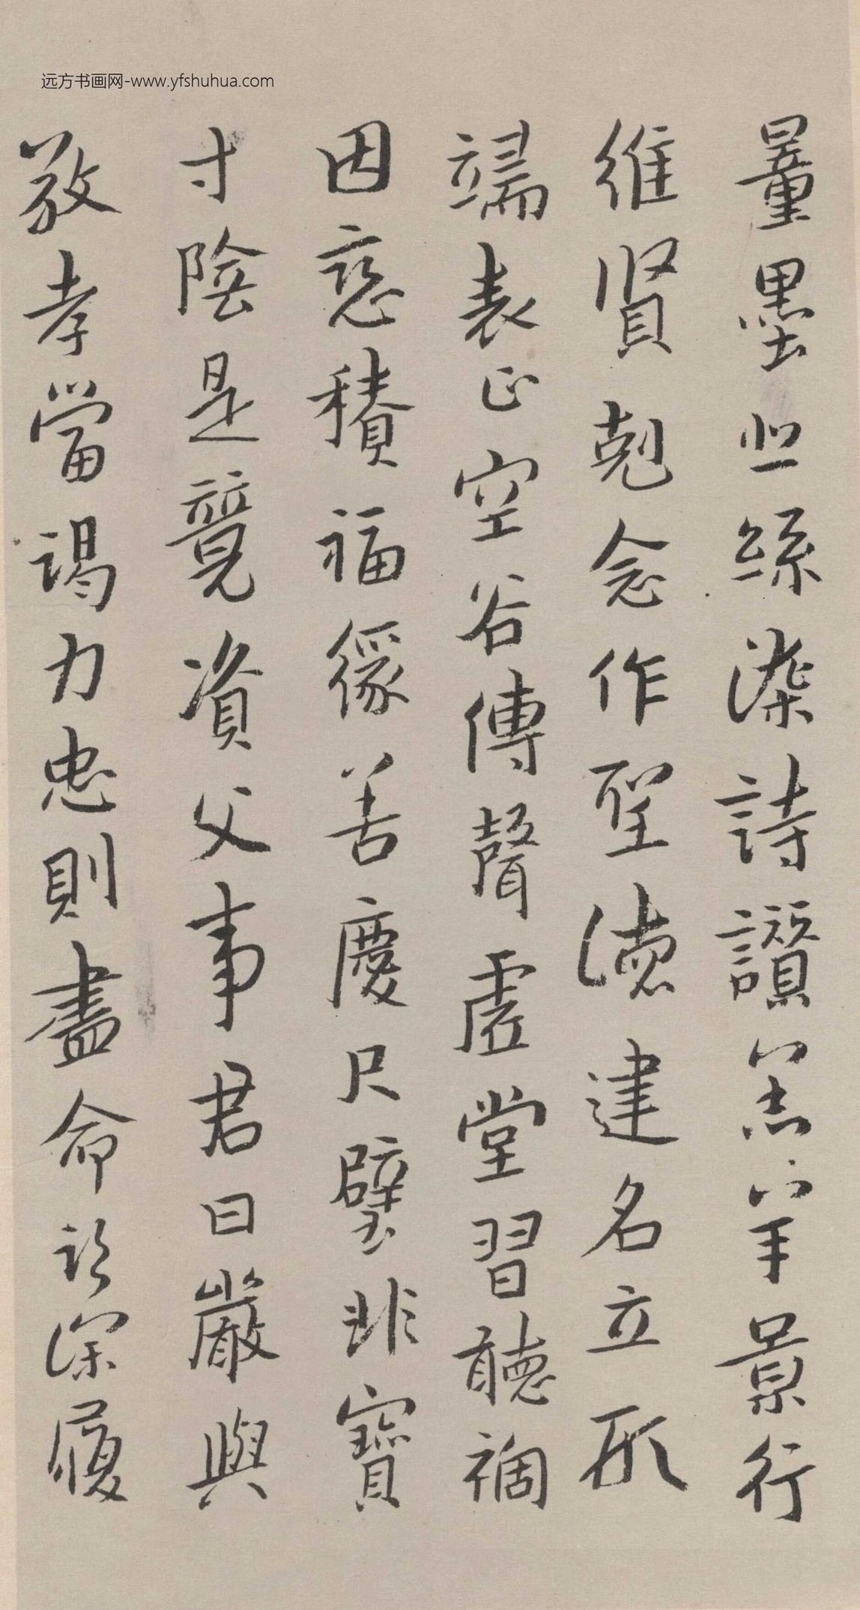 远方书画网-www.yfshuhua.com
量墨悲絲染詩讃羔羊景行
維賢剋念作聖德建名立形
端表正空谷傳聲虛堂習聽禍
因惡積福緣善慶尺璧非寶
寸陰是競資父事君曰嚴與
敬孝當竭力忠則盡命臨深履